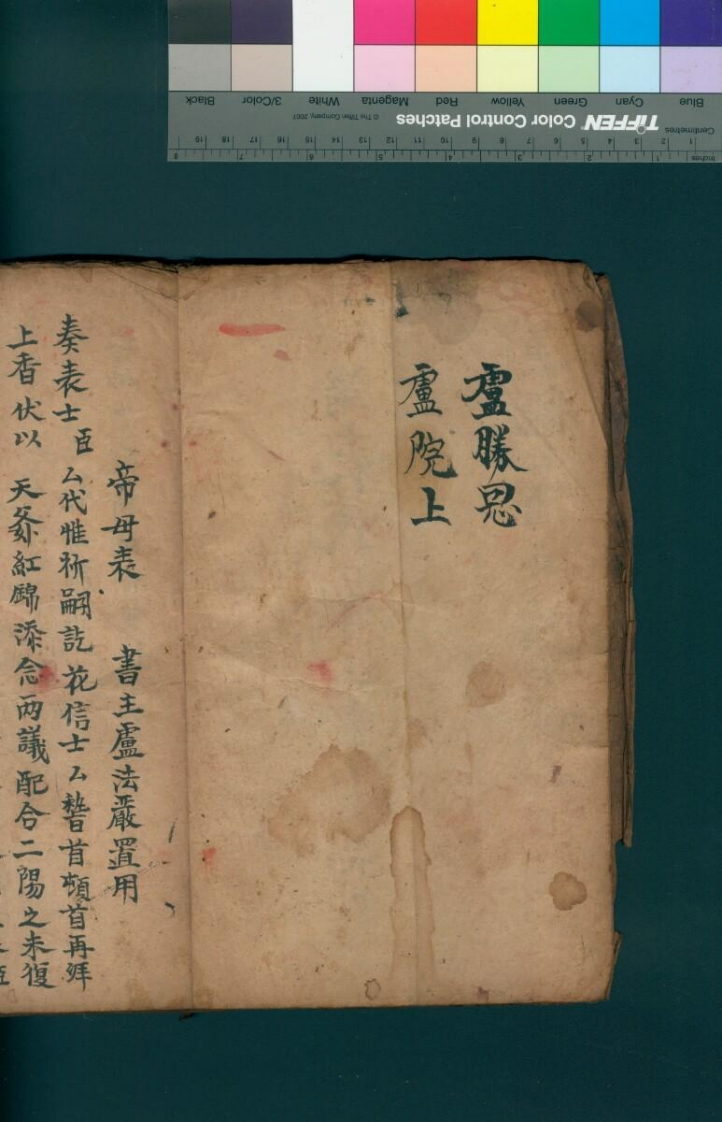 盧勝恩
盧院上
帝母表 書主盧法嚴置用
奏表士臣厶代惟祈嗣訖花信士厶 首頓首再拜
上香伏以 天 紅錦添念兩議配合二陽之未復
Blue Cyan Green Yellow Red Magenta White 3/Color Black
TIFFEN Color Control Patches © The Tiffen Company, 2007
Centimetres 1 2 3 4 5 6 7 8 9 10 11 12 13 14 15 16 17 18 19
Inches 1 2 3 4 5 6 7 8